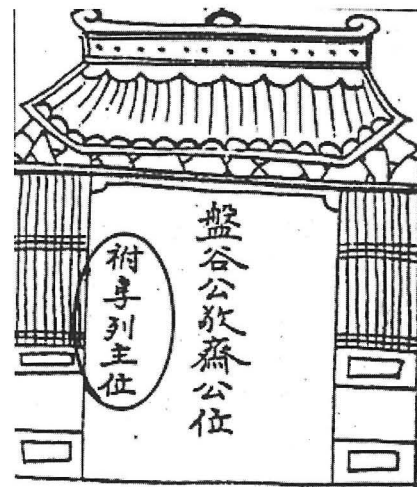 盤谷公敬齋公位
祔享列主位